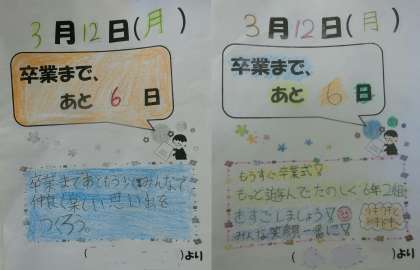 3月12日(月)
卒業まで、
あと 6 日
卒業まであともう少しみんなで
仲良く楽しい思い出を
つくろう。
(　　　)より
3月12日(月)
卒業まで、
あと 6 日
もうすぐ卒業式
もっと遊んでたのしく6年2組
をすごしましょう
みんな笑顔で一番に
(　　　)より